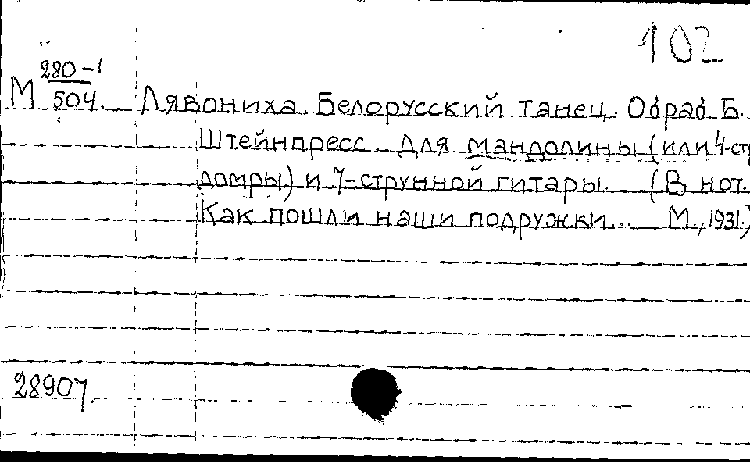 102
280-1
М 504. Лявониха. Белорусский танец. Обраб. Б.
Штейнпресс. Для мандолины (или 4-стр
домры) и 7-струнной гитары. (В нот.
Как пошли наши подружки... М., 1931.)
28907